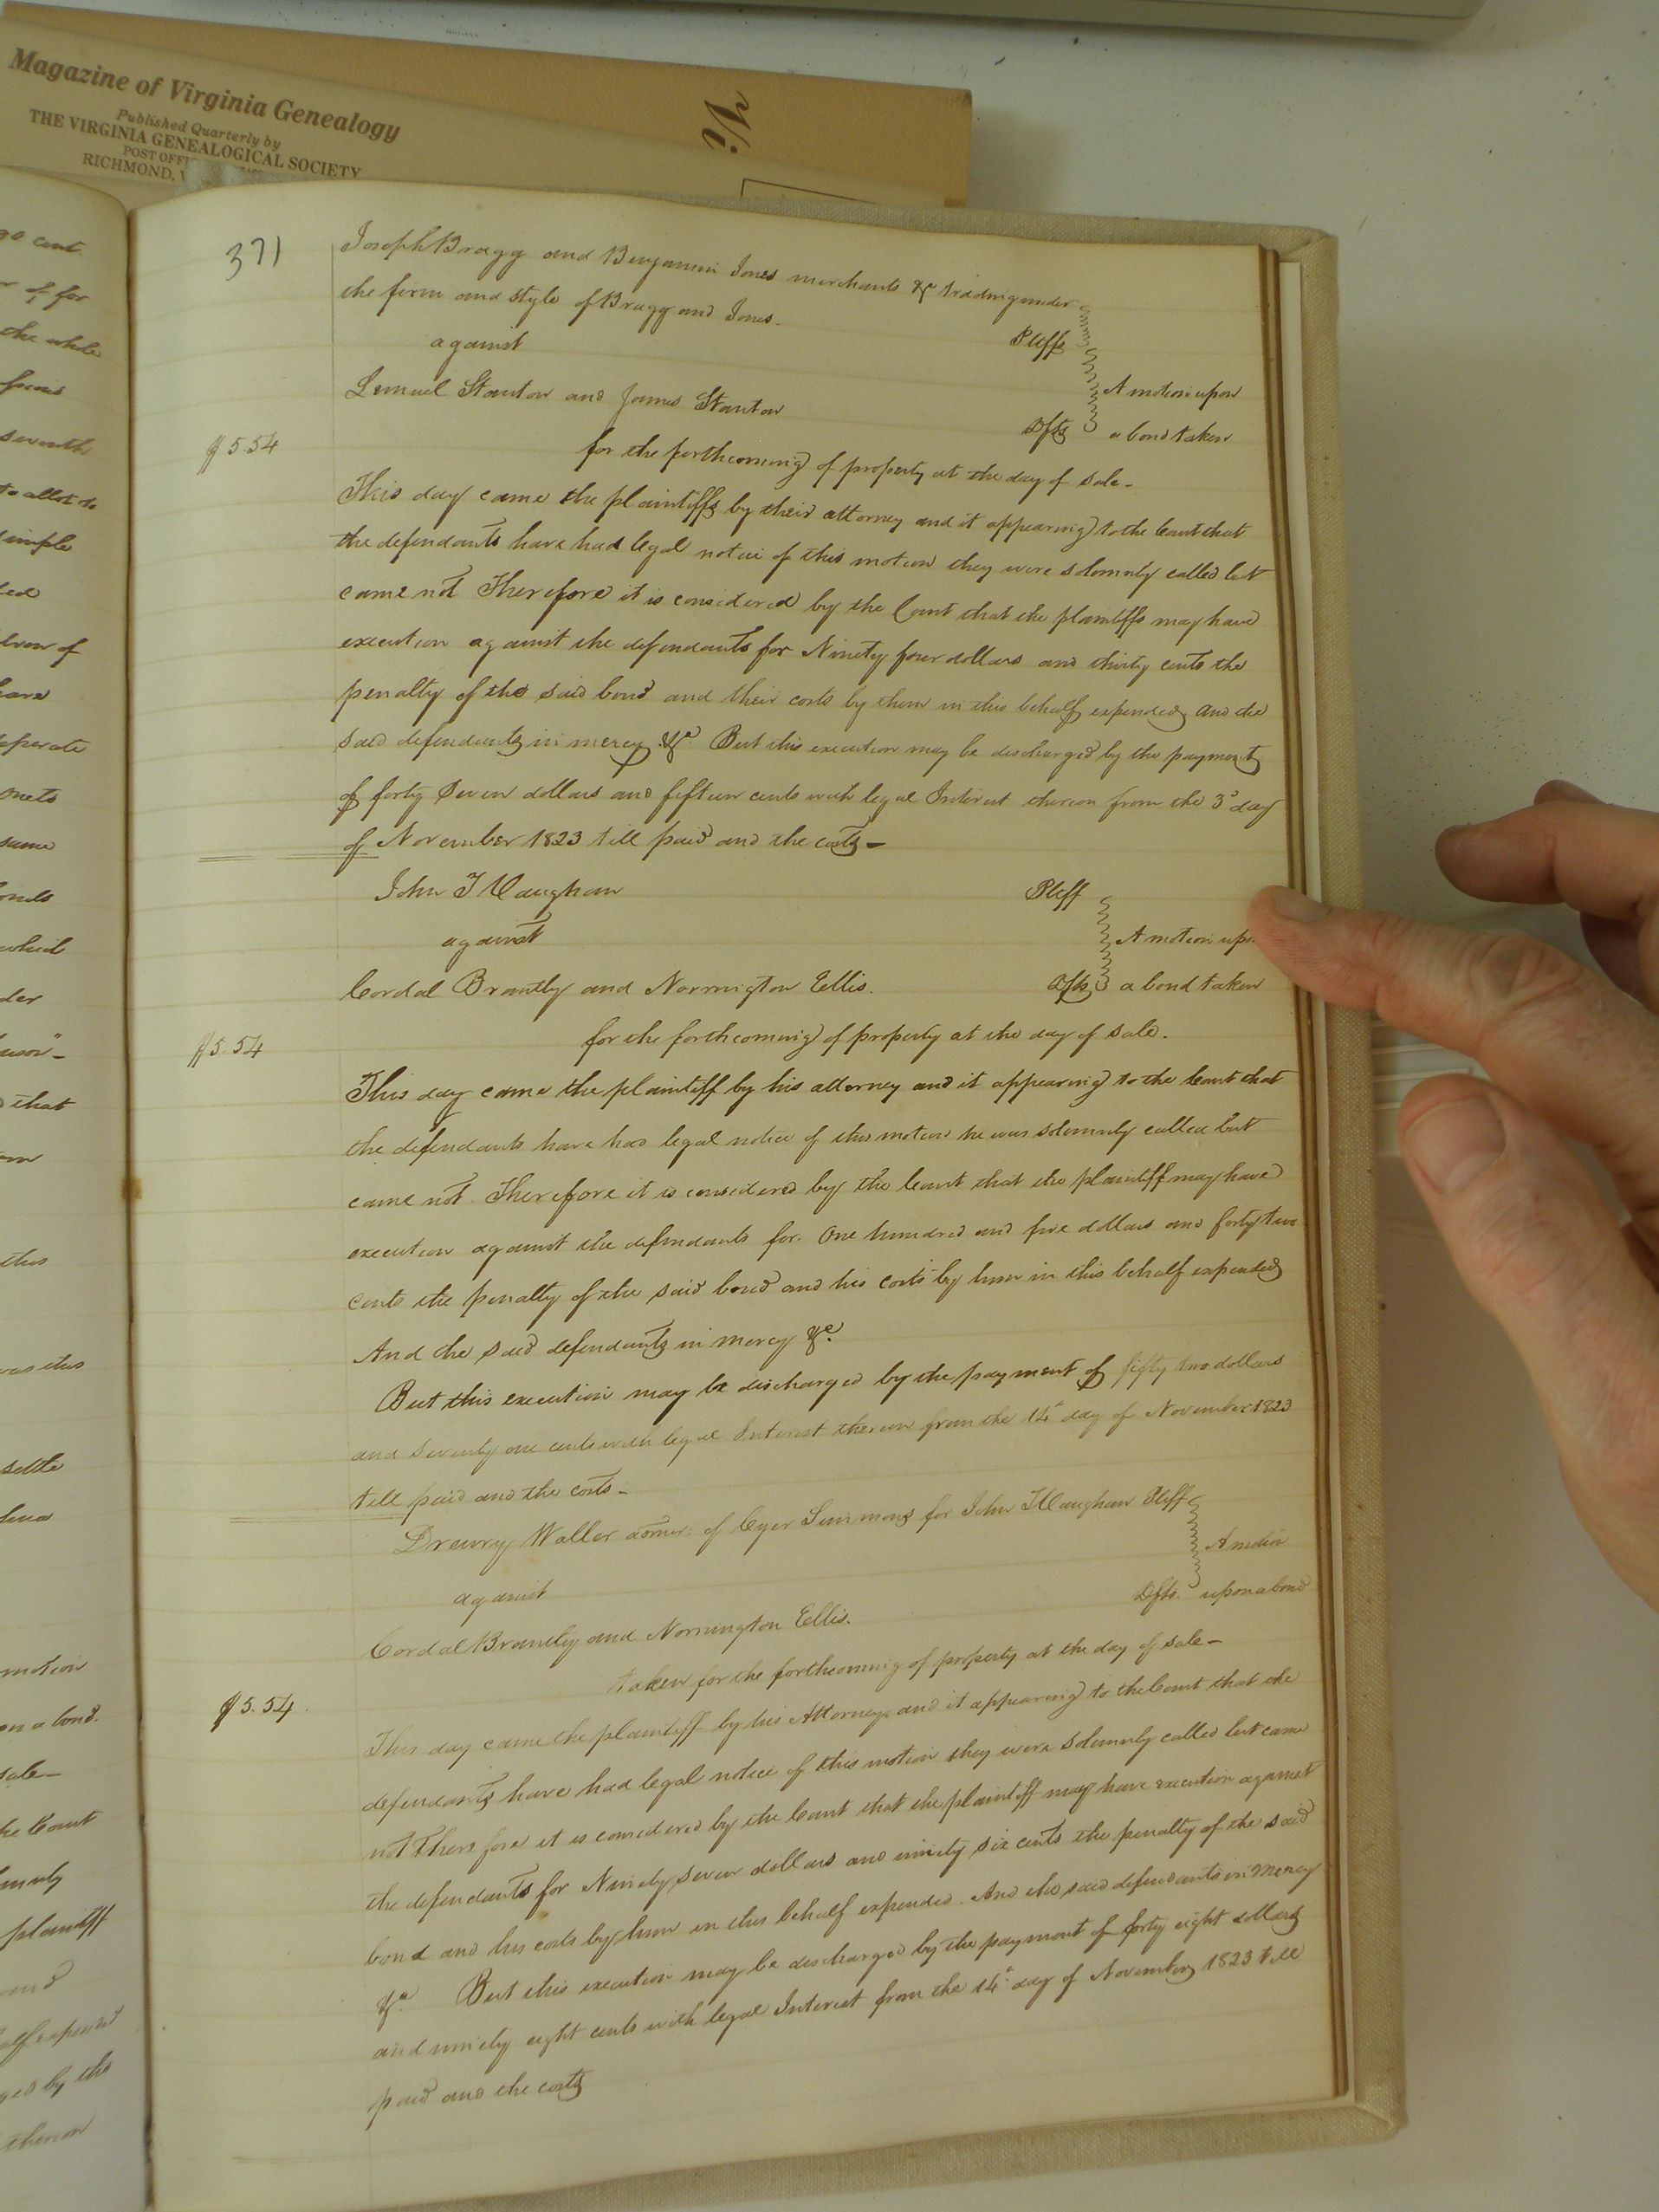 Magazine of Virginia Genealogy
Published Quarterly by
THE VIRGINIA GENEALOGICAL SOCIETY
POST OFFI
RICHMOND, V
Vi
371
Joseph Bragg and Benjamin Jones merchants &c trading under
the firm and style of Bragg and Jones.
against Pltffs
Lemuel Stanton and James Stanton A motion upon
Dfts a bond taken
$5.54
for the forthcoming of property at the day of sale-
This day came the plaintiffs by their attorney and it appearing to the Court that
the defendants have had legal notice of this motion they were solemnly called but
came not Therefore it is considered by the Court that the plaintiffs may have
execution against the defendants for Ninety four dollars and thirty cents the
penalty of the said bond and their costs by them in this behalf expended and the
said defendants in mercy &c But this execution may be discharged by the payment
of forty Seven dollars and fifteen cents with legal Interest thereon from the 3d day
of November 1823 till paid and the costs-
John T Vaughan Pltff
against A motion upo
Cordal Brantly and Normington Ellis. Dfts a bond taken
for the forthcoming of property at the day of sale.
$5.54
This day came the plaintiff by his attorney and it appearing to the Court that
the defendants have had legal notice of this motion he was solemnly called but
came not. Therefore it is considered by the Court that the plaintiff may have
execution against the defendants for. One hundred and five dollars and forty two
cents the penalty of the said bond and his costs by him in this behalf expended
And the said defendants in mercy &c.
But this execution may be discharged by the payment of fifty two dollars
and seventy one cents with legal Interest thereon from the 14th day of November 1823
till paid and the costs-
Drewry Waller admr. of Cyer Simmons for John T Vaughan Pltff
against A motion
Dfts. upon a bond
Cordal Brantly and Normington Ellis.
taken for the forthcoming of property at the day of sale-
$5.54.
This day came the plaintiff by his Attorney and it appearing to the Court that the
defendants have had legal notice of this motion they were solemnly called but came
not Therefore it is considered by the Court that the plaintiff may have execution against
the defendants for Ninety seven dollars and ninety six cents the penalty of the said
bond and his costs by him in this behalf expended. And the said defendants in Mercy
&c. But this execution may be discharged by the payment of forty eight dollars
and ninety eight cents with legal Interest from the 14th day of November 1823 till
paid and the costs